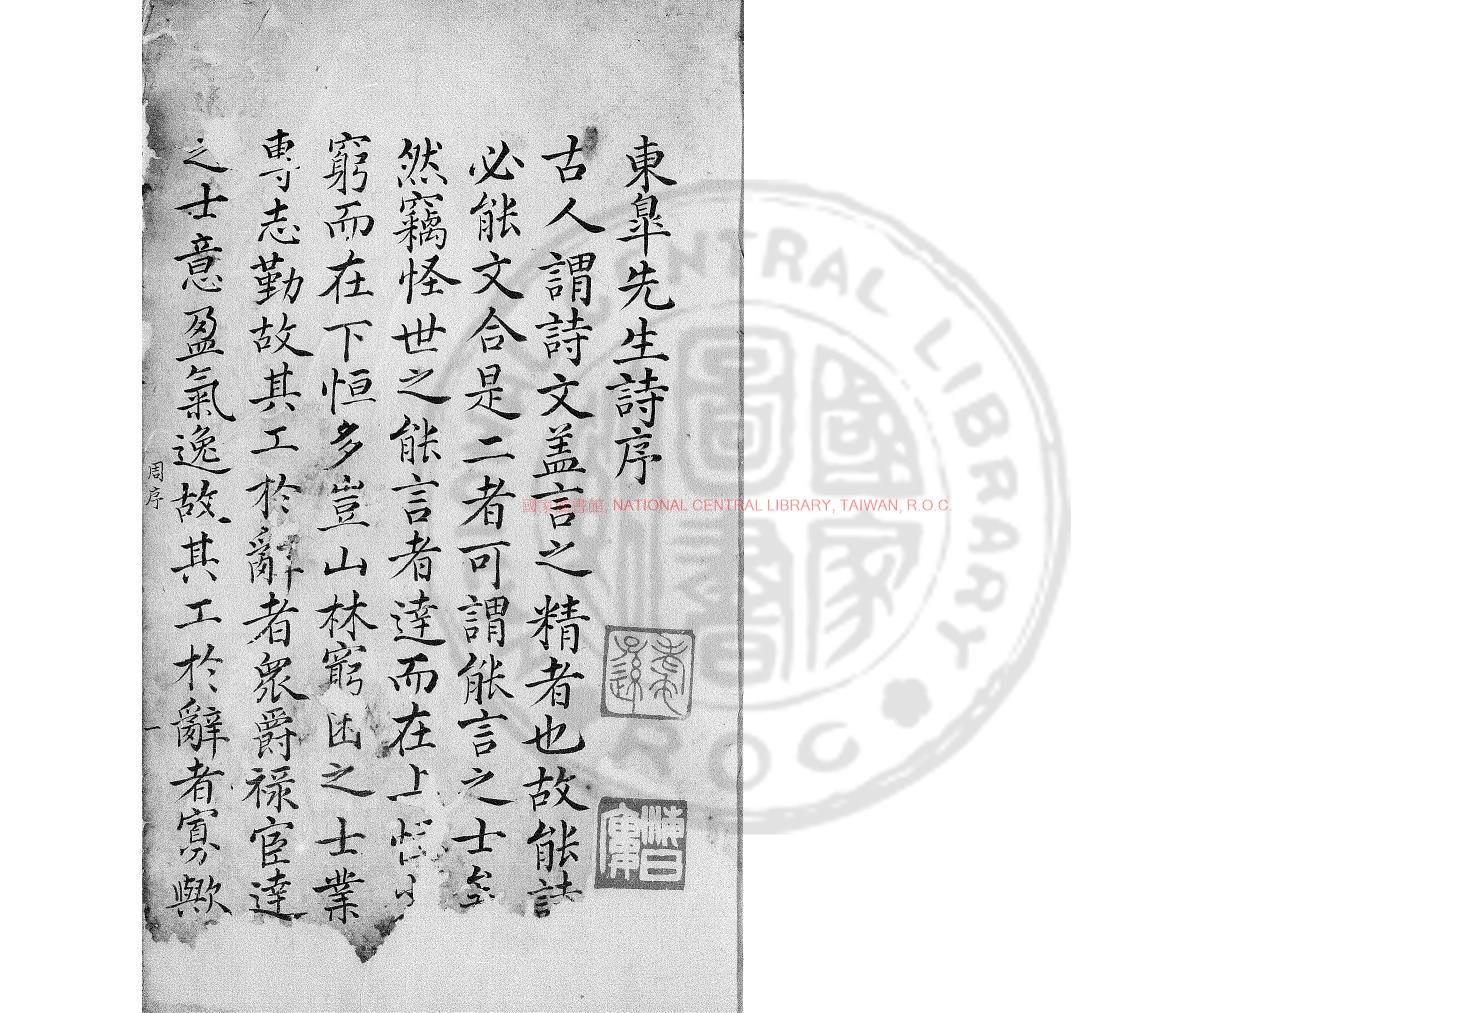 東臯先生詩序
古人謂詩文盖言之精者也故能詩
必能文合是二者可謂能言之士
然竊怪世之能言者達而在上恒
窮而在下恒多豈山林窮困之士業
專志勤故其工於辭者衆爵禄宦達
之士意盈氣逸故其工於辭者寡歟
周序
一
NATIONAL CENTRAL LIBRARY, TAIWAN, R.O.C.
CENTRAL LIBRARY
ROC